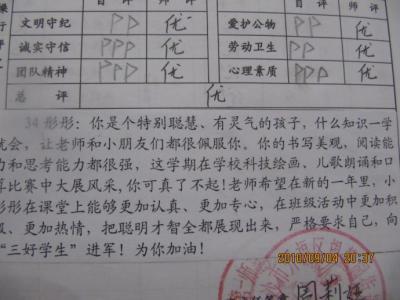 自 评 师 评 自 评 师 评
文明守纪 PP 优 爱护公物 PP 优
诚实守信 PPP 优 劳动卫生 PPP 优
团队精神 PPP 优 心理素质 PPP 优
总 评 优
34 彤彤：你是个特别聪慧、有灵气的孩子，什么知识一学
就会，让老师和小朋友们都很佩服你。你的书写美观，阅读能
力和思考能力都很强，这学期在学校科技绘画、儿歌朗诵和口
算比赛中大展风采，你可真了不起！老师希望在新的一年里，小
彤彤在课堂上能够更加认真、更加专心，在班级活动中更加积
极、更加热情，把聪明才智全都展现出来，严格要求自己，向
“三好学生”进军！为你加油！
2010/09/04 20:37